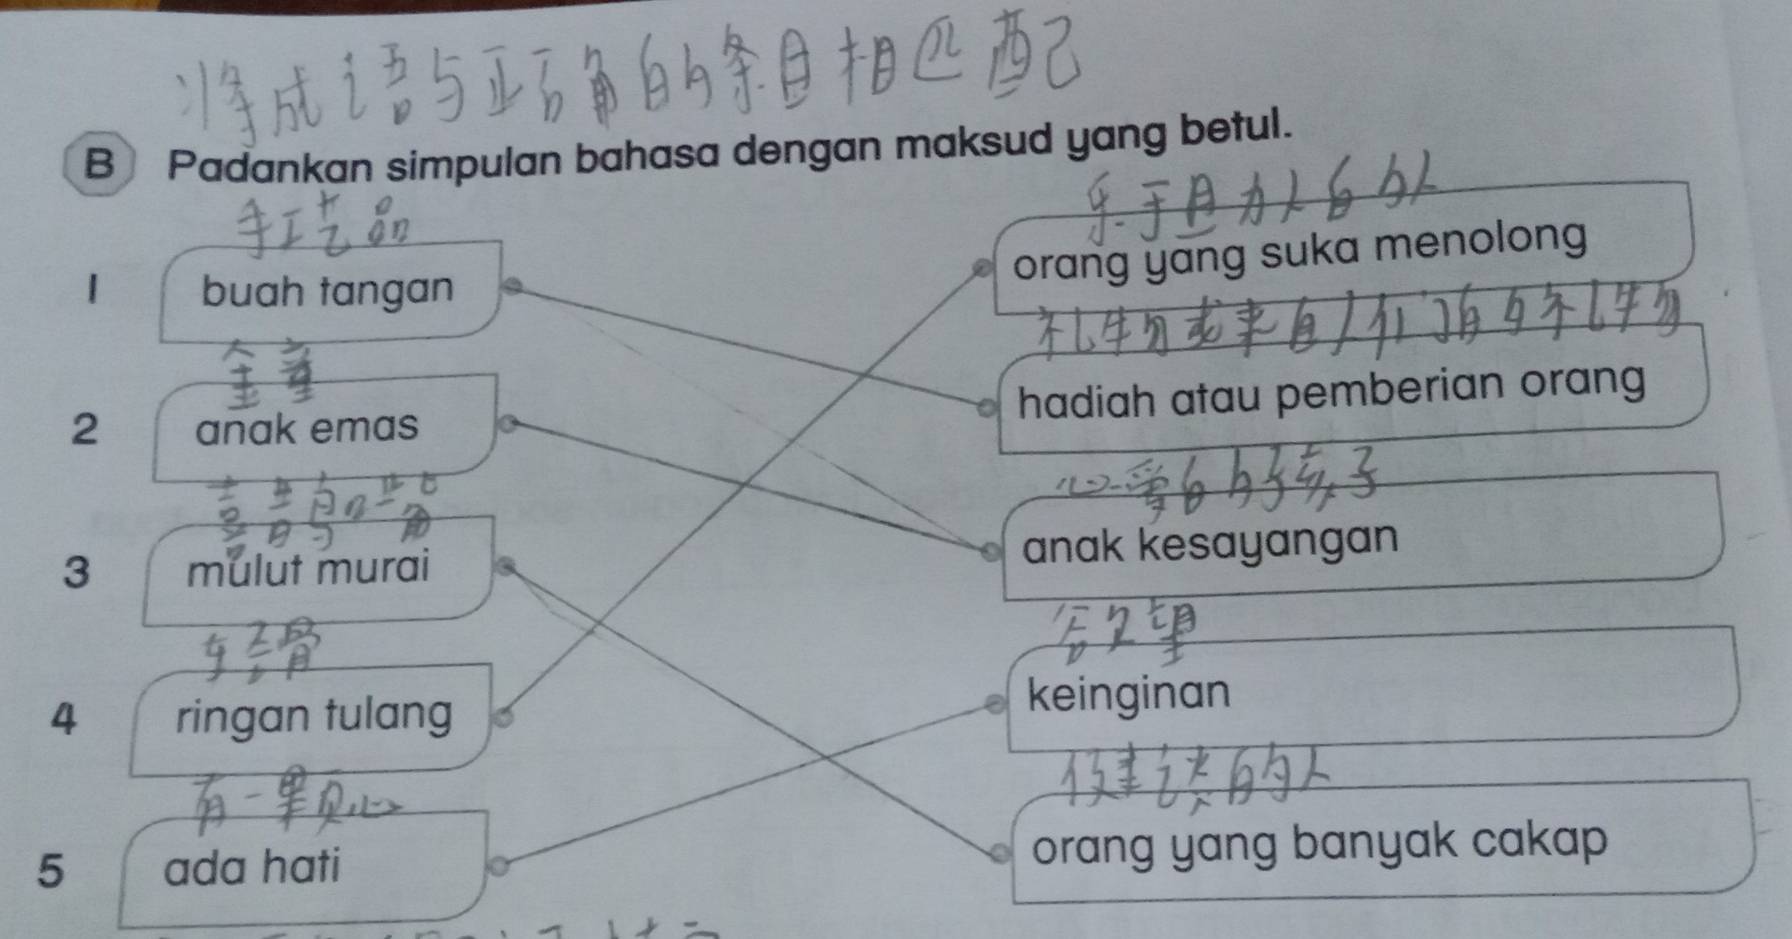 将成语与正确的条目相匹配
B Padankan simpulan bahasa dengan maksud yang betul.
手工艺品
1 buah tangan
金童
2 anak emas
喜鹊嘴
3 mulut murai
轻骨
4 ringan tulang
有一颗心
5 ada hati
乐于助人的人
orang yang suka menolong
礼物或来自人们的礼物
hadiah atau pemberian orang
心爱的孩子
anak kesayangan
希望
keinginan
健谈的人
orang yang banyak cakap